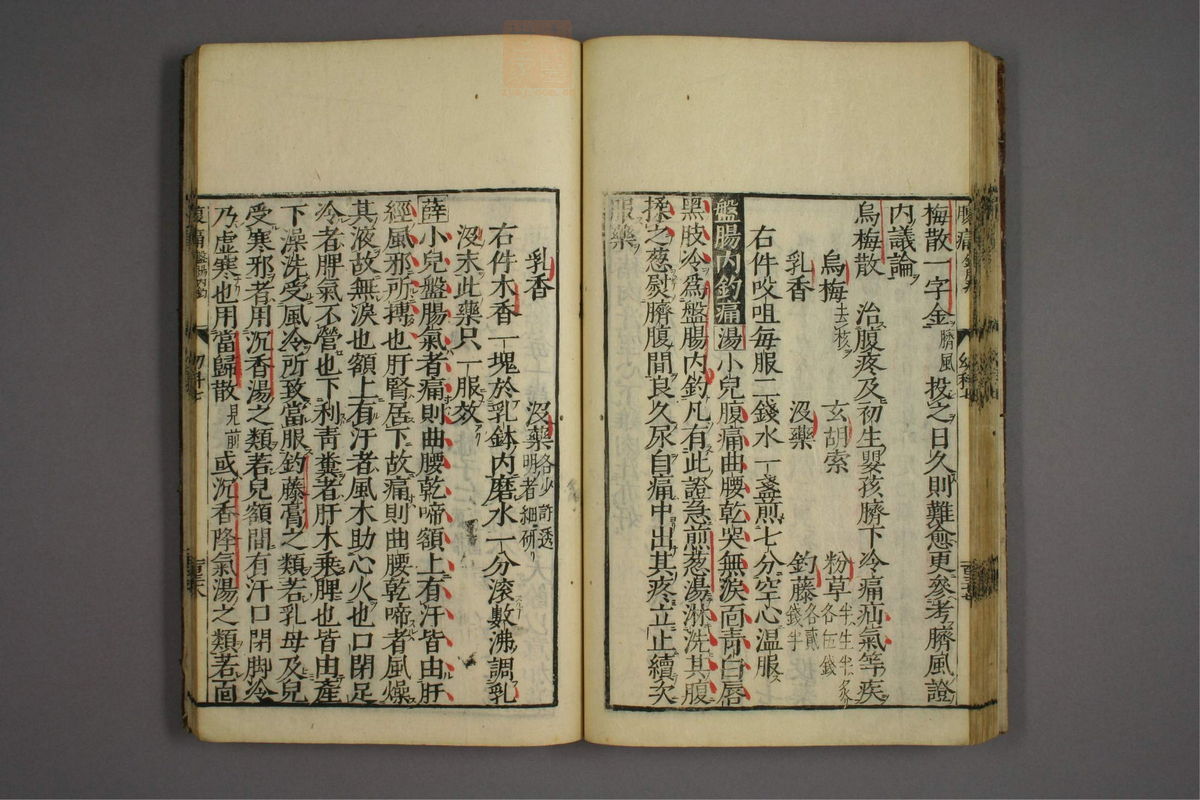 梅散一字金臍風投之日久則難愈更參考臍風證
内議論
烏梅散　治腹疼及初生嬰孩臍下冷痛疝氣等疾
烏梅去核　玄胡索　粉草半生半炙各伍錢
乳香　沒藥　釣藤各貳錢半
右件㕮咀每服二錢水一盞煎七分空心溫服
盤腸内釣痛湯小兒腹痛曲腰乾哭無淚面青白唇
黑肢冷爲盤腸内釣凡有此證急煎葱湯淋洗其腹
揉之葱慰臍腹間良久尿自痛中出其疼立止續次
服藥
乳香　沒藥各少許透明者細研
右件木香一塊於乳鉢内磨水一分滚數沸調乳
沒末此藥只一服效
薛小兒盤腸氣者痛則曲腰乾啼額上有汗皆由肝
經風邪所搏也肝腎居下故痛則曲腰乾啼者風燥
其液故無淚也額上有汗者風木助心火也口閉足
冷者脾氣不營也下利青糞者肝木乘脾也皆由產
下澡洗受風冷所致當服釣藤膏之類若乳母及兒
受寒邪者用沉香湯之類若兒額間有汗口閉脚冷
乃虛寒也用當歸散見前或沉香降氣湯之類若面